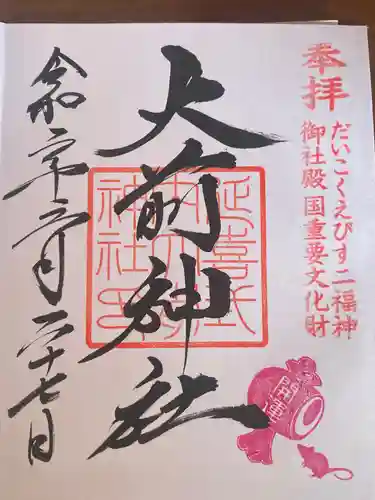 奉拝
だいこくえびす二福神
御社殿国重要文化財
大前神社
延喜式
内大前
神社
開運
令和六年三月二十七日